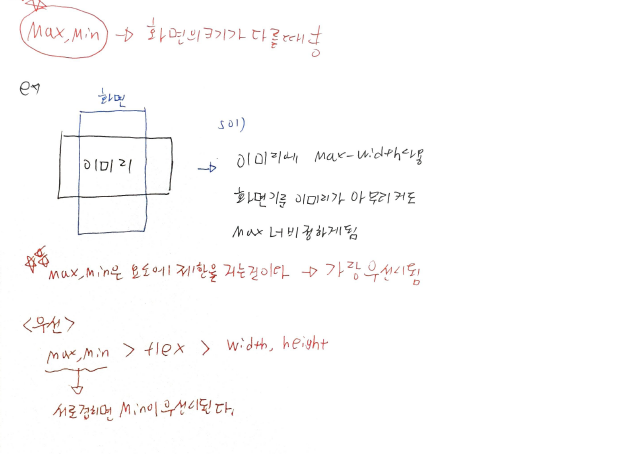 Max, Min → 화면의 크기가 다를때 사용
ex
화면
이미지
sol)
→ 이미지에 max-width사용
화면기준 이미지가 아무리 커도
max 너비 정하게됨
max, min은 요소에 제한을 거는것이다 → 가장 우선시됨
<우선>
max, min > flex > width, height
서로겹치면 Min이 우선시된다.